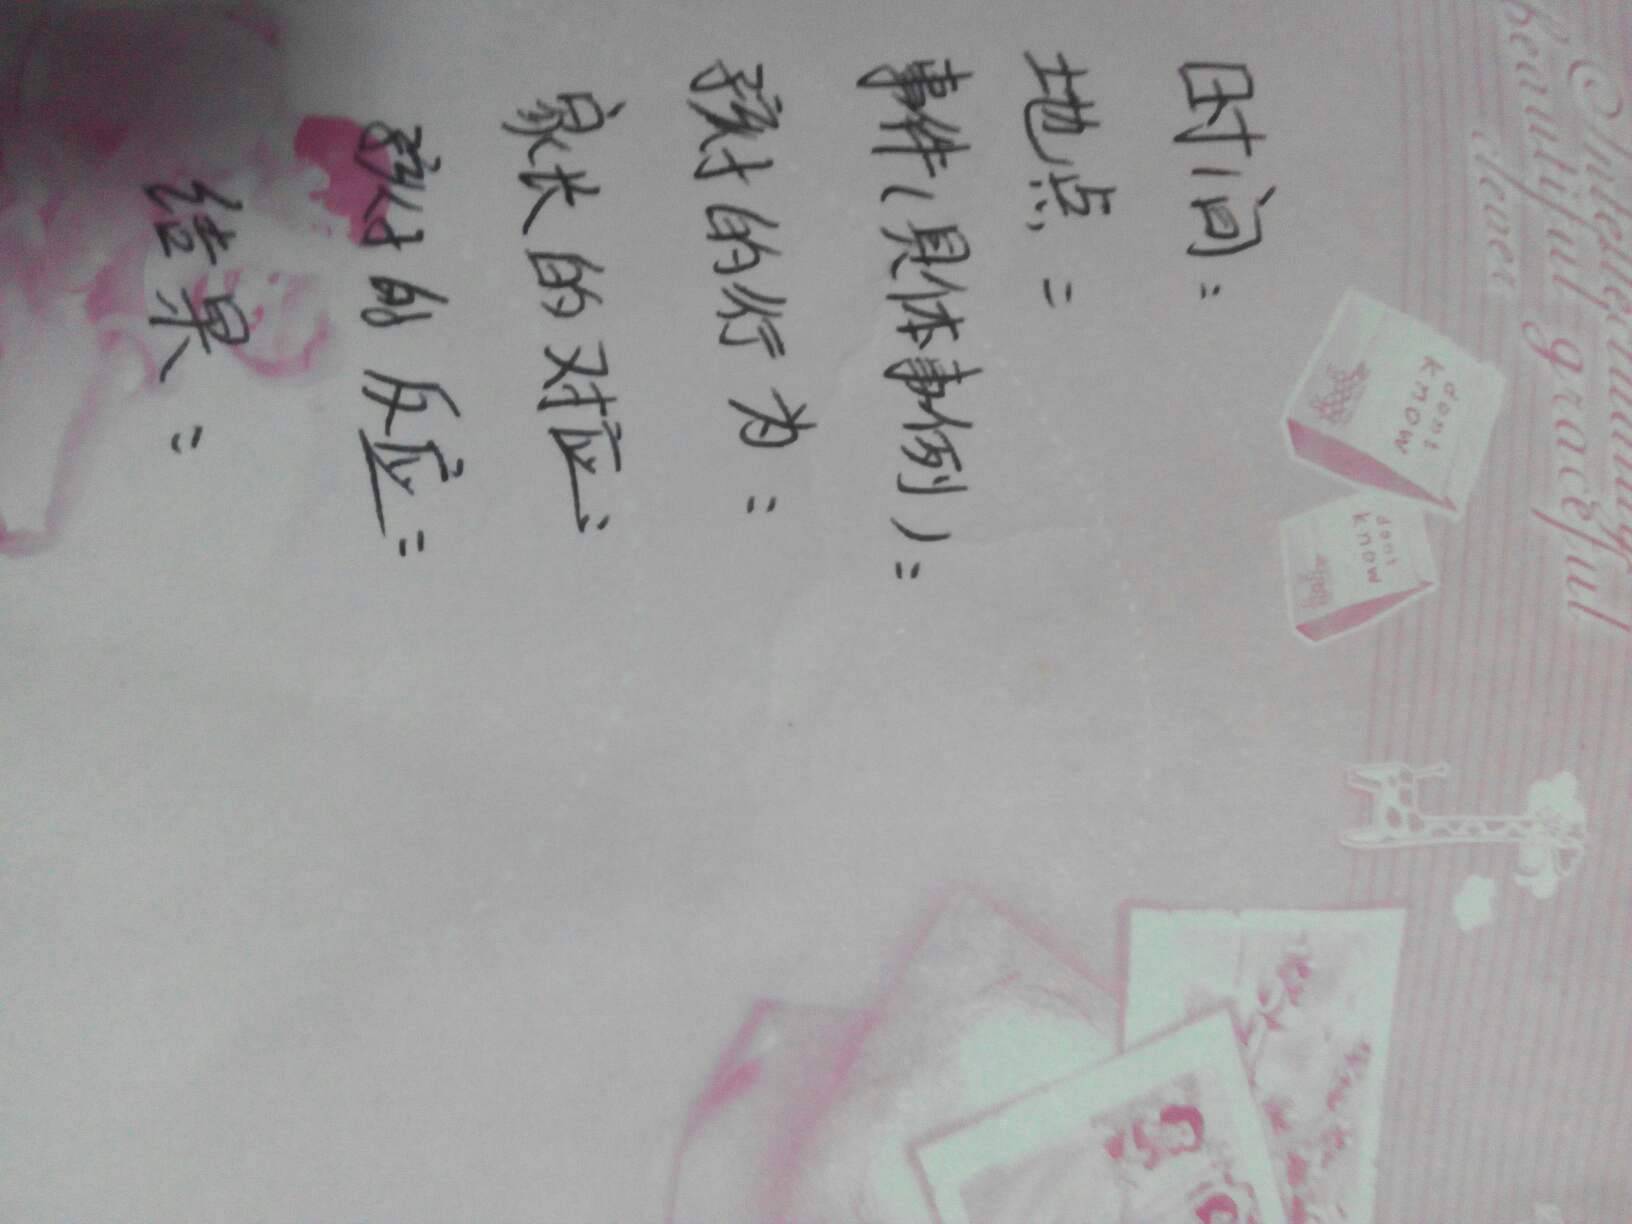 时间：
地点：
事件（具体事例）：
孩子的行为：
家长的对应：
孩子的反应：
结果：
beautiful graceful
dont
know
dont
know